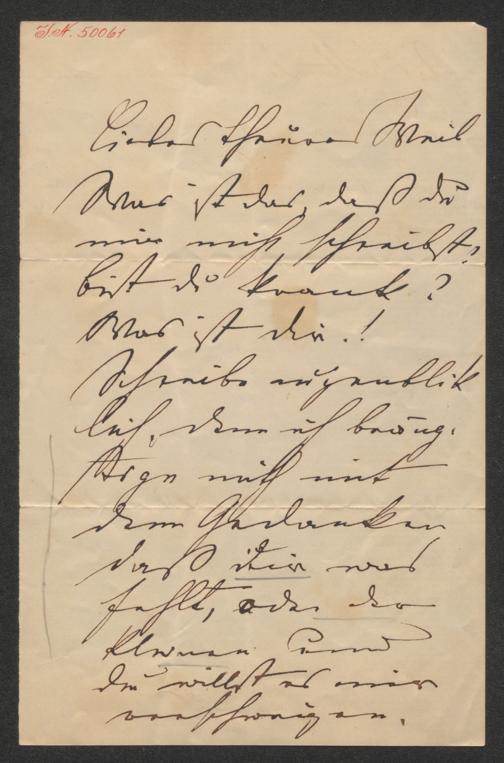 J.N. 50061
Liebes theures Weib
Was ist das, daß du
mir nicht schreibst,
bist du krank?
Was ist dir.!
Schreibe augenblik
lich, denn ich
mich mit
dem Gedanken
daß dir was
fehlt, oder der
Kleinen und
du willst es mir
verschweigen.